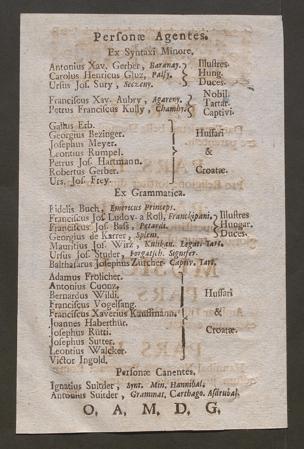 Personæ Agentes.
Ex Syntaxi Minore.
Antonius Xav. Gerber, Baranay. Illustres
Carolus Henricus Gluz, Palfy. Hung.
Ursus Jos. Sury, Duces.
Franciscus Xav. Aubry, Agareny. Nobil. Tartar.
Petrus Franciscus Kully, Chamby. Captivi.
Gallus Erb.
Georgius Bezinger.
Josephus Meyer. Hussari
Leontius Rumpel. &
Petrus Jos. Hartmann.
Robertus Gerber. Croatæ.
Urs. Jos. Frey.
Ex Grammatica.
Fidelis Buch, Princeps.
Franciscus Jos. Ludov. a Roll, Francispani, Illustres
Franciscus Jos. Bass, Petazii. Hungar.
Georgius de Karrer, Duces.
Mauritius Jos. Wirz, Legati Tart.
Ursus Jos. Studer, Forgatsch. Signifer.
Balthasarus Josephus Zürcher. Captiv. Tart.
Adamus Frölicher.
Antonius Cuonz.
Bernardus Wildi. Hussari
Franciscus Vogelsang.
Franciscus Xaverius Kauffmann. &
Joannes Haberthür.
Josephus Rütti. Croatæ.
Josephus Sutter.
Leontius Walcker.
Victor Ingold.
Personæ Canentes.
Ignatius Suitder, Synt. Min. Hannibal.
Antonius Suitder, Grammat. Carthago. Asdrubal.
O, A, M, D, G,